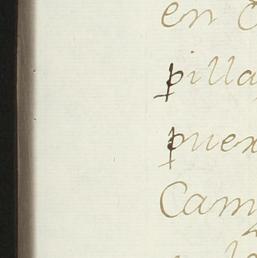 en C
pilla
puex
Cam